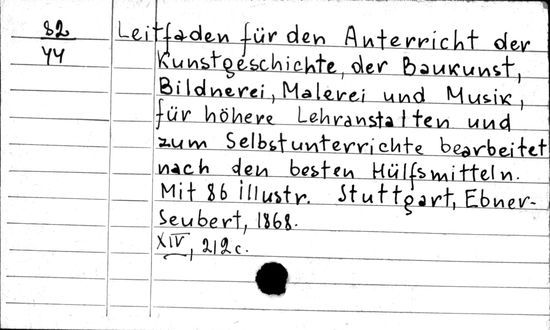 82 Leitfaden für den Anterricht der
44 Kunstgeschichte, der Baukunst,
Bildnerei, Malerei und Musik,
für höhere Lehranstalten und
zum Selbstunterrichte bearbeitet
nach den besten Hülfsmitteln.
Mit 86 illustr. Stuttgart, Ebner-
Seubert, 1868.
XIV, 212 c.